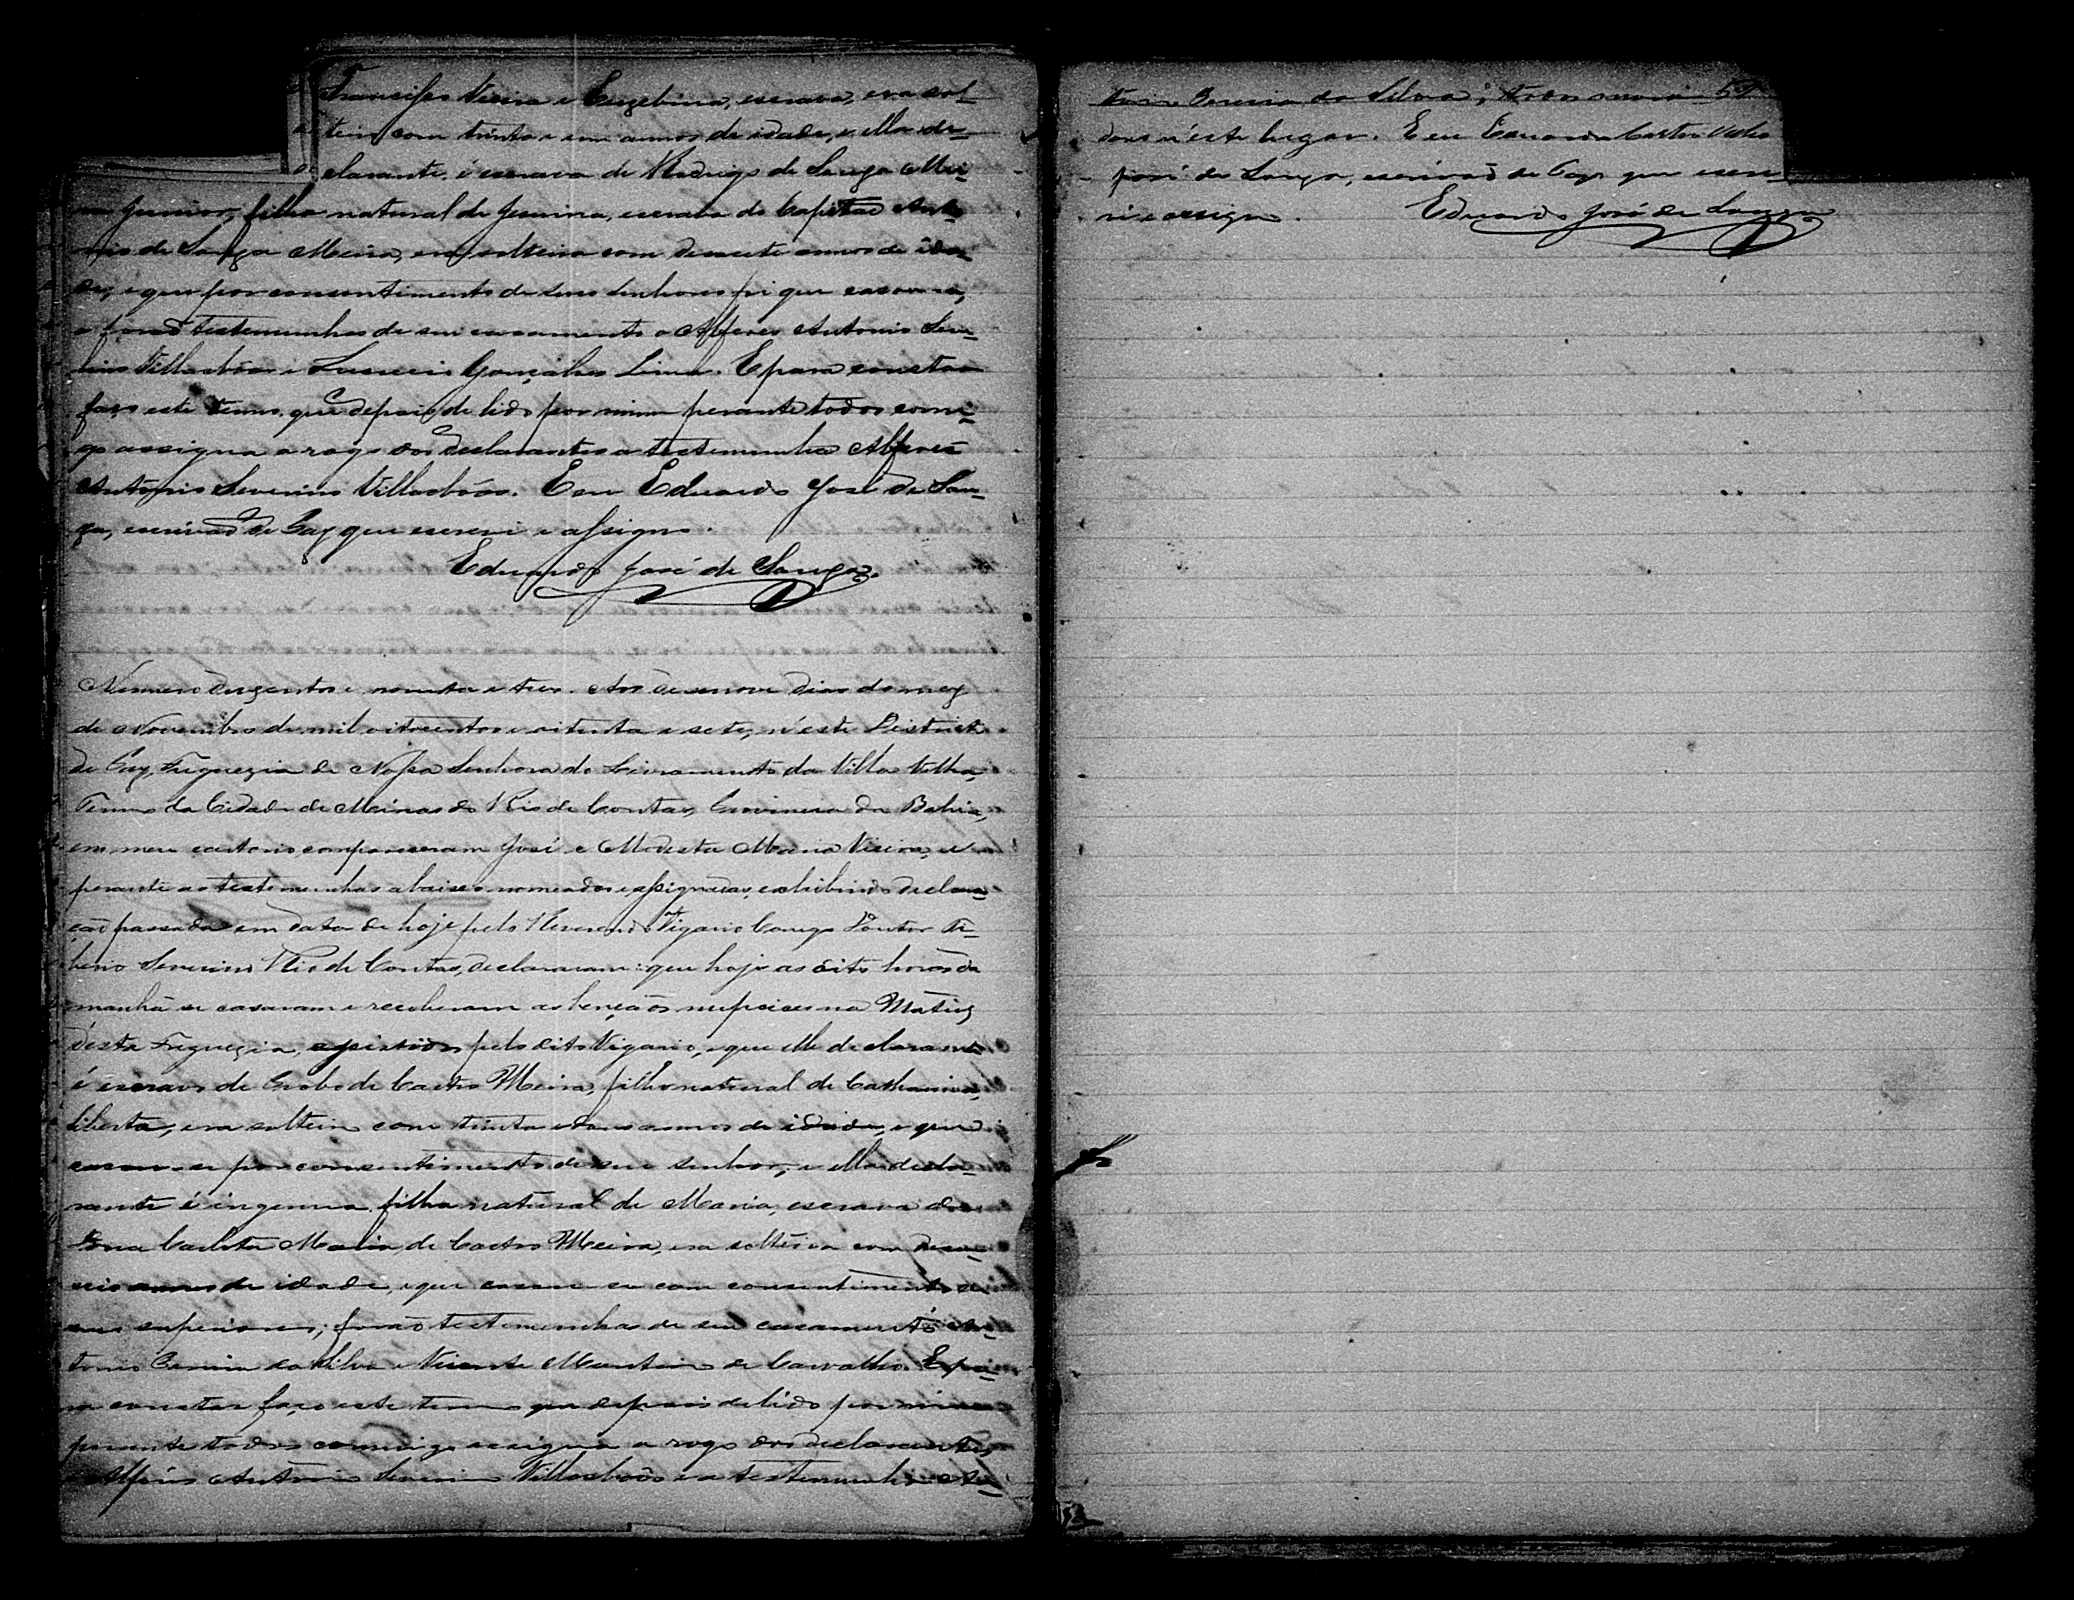 Francisco Vieira e Eugebina, escrava, era sol-
teiro com trinta e um annos de idade, e ella de-
clarante é escrava de Rodrigo de Souza Mei-
ra Junior, filha natural de Juvina, escrava do Capitão Anto-
nio de Souza Meira, era solteira com desesete annos de ida-
de, e que por consentimento de seus senhores foi que casou-se,
e forão testemunhas de seu casamento o Alferes Antonio Seve-
rino Villasbôas e Gonçalves Lima. E para constar
faço este termo, que depois de lido por mim perante todos comi-
go assigna a rogo dos declarantes a testemunha Alferes
Antonio Severino Villasbôas. E eu Eduardo José de Sou-
za, escrivão de Paz que escrevi e assigno.
Eduardo José de Souza.
Número duzentos e noventa e tres. Aos desenove dias do mez
de Novembro de mil oitocentos e oitenta e sete, n'este Districto
de Paz, Freguezia de Nossa Senhora do Livramento da Villa Velha,
Termo da Cidade de Minas do Rio de Contas, Provincia da Bahia,
em meu cartorio compareceram José e Modesta Maria Vieira, e
perante as testemunhas abaixo nomeadas e assignadas, exhibindo declara-
ção passada em data de hoje pelo Reverendo Vigario Conego Doutor Ti-
berio Severino Rio de Contas, declararam: que hoje as oito horas da
manhã se casaram e receberam as bençãos nupciaes na Matriz
desta Freguezia, assistidos pelo dito Vigario, e que elle declarante
é escravo de de Castro Meira, filho natural de Catharina,
liberta, era solteiro com trinta e dous annos de idade, e que
casou-se por consentimento de seu senhor, e ella decla-
rante é ingenua, filha natural de Maria, escrava de
Dona Carlota Maria de Castro Meira, era solteira com deses-
seis annos de idade, e que casou-se com consentimento de
seus superiores; forão testemunhas de seu casamento An-
tonio Pereira da Silva e Vicente Martins de Carvalho. E pa-
ra constar faço este termo que depois de lido por mim
perante todos commigo assigna a rogo dos declarantes,
Alferes Antonio Severino Villasbôas e a testemunha An-
tonio Pereira da Silva; todos mora-
dores n'este lugar. E eu Eduardo
José de Souza, escrivão de Paz que escre-
vi e assigno. Eduardo José de Souza